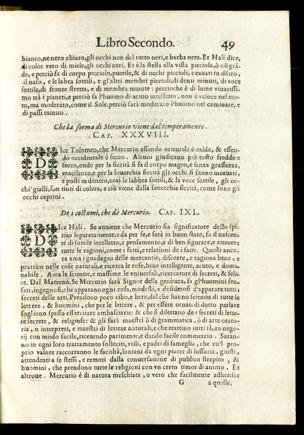 Libro Secondo. 49
bianco, ne nero chiaro, gli occhi non del tutto neri, e barba nera. Et Hali dice,
di color vero di miele, gli occhi neri. Et è la stella alla vista picciola, ò nõ grã-
de, e perciò fà di corpo picciolo, puerile, & di occhi piccioli, e cauati in dētro, e
il naso, e le labra sottili, e gl'altri membri piccioli, di denti minuti, di voce
sottile, di fronte stretta, e di membra minute: percioche è di lume
tra i pianeti, e perciò fà l'huomo di acuto intelletto, non è veloce nel mo-
to, ma moderato, come il Sole, perciò sarà moderato l'huomo nel caminare, e
di passi minuti.
Che la forma di Mercurio viene dal temperamento.
CAP. XXXVIII.
DIce Tolomeo, che Mercurio essendo orientale è caldo, & essen-
do occidentale è secco. Alcuni giudicano più tosto freddo e
secco, onde per la siccità si fà il corpo magro, e senza grassezza,
macilente, e per la souerchia siccità gli occhi si fanno incauati,
e posti in dentro, con le labbra sottili, & la voce sottile, gli oc-
chi gialli, son tinti di colera, e ciò viene dalla souerchia siccità, come sono gli
occhi caprini.
De i costumi, che dà Mercurio. CAP. IXL.
DIce Hali. Se auuiene che Mercurio sia significatore dello spi-
rito separatamente, e da per se, e farà in buon stato, fa il nascen-
te di sottile intelletto, e pensamento, e di ben figurare, e ritenere
tutte le ragioni, come i fatti, e relationi de i fatti. Quelli anco-
ra ama i guadagni delle mercantie, discerne, e ragiona bene, è
prattico nelle cose naturali, e ricerca le cose, bono intelligente, acuto, e doma-
nabile. Ama le scienze, e massime le vniuersali, ricercatore di secreti, & felice.
Dal Materno. Se Mercurio sarà Signor della genitura, fa gl'huomini sen-
sati, ingegnosi, e che apparano ogni cosa, modesti, e desiderosi d'apparare tutti i
secreti delle arti. Prendono poco cibo, e beuanda che hanno scienza di tutte le
lettere, & huomini, che per le lettere, & per essere oratori di dotto parlare
sogliono spesso essercitare ambasciarie: & che si dilettano de i secreti di lette-
re secrete, & religiose: & gli farà maestri ò di grammatica, ò di arte orato-
ria, o interpreti, e maestri di lettere naturali, e che trattano tutti i lor nego-
tij con modo facile, ricercando parimente, e dando facile commercio. Saran-
no in ogni loro trattamento solleciti, vtili, e padri di fameglia, che co'l pro-
prio valore raccorranno le facoltà, lontani da ogni piacer di lussuria, giusti,
attendenti a se stessi, e remoti dalla conuersatione di publico strepito, &
huomini, che prendono tutte le religioni con va certo timor di animo. Et
altroue. Mercurio è di natura meschiata, o vero che facilmente adherisce
G a quelle,